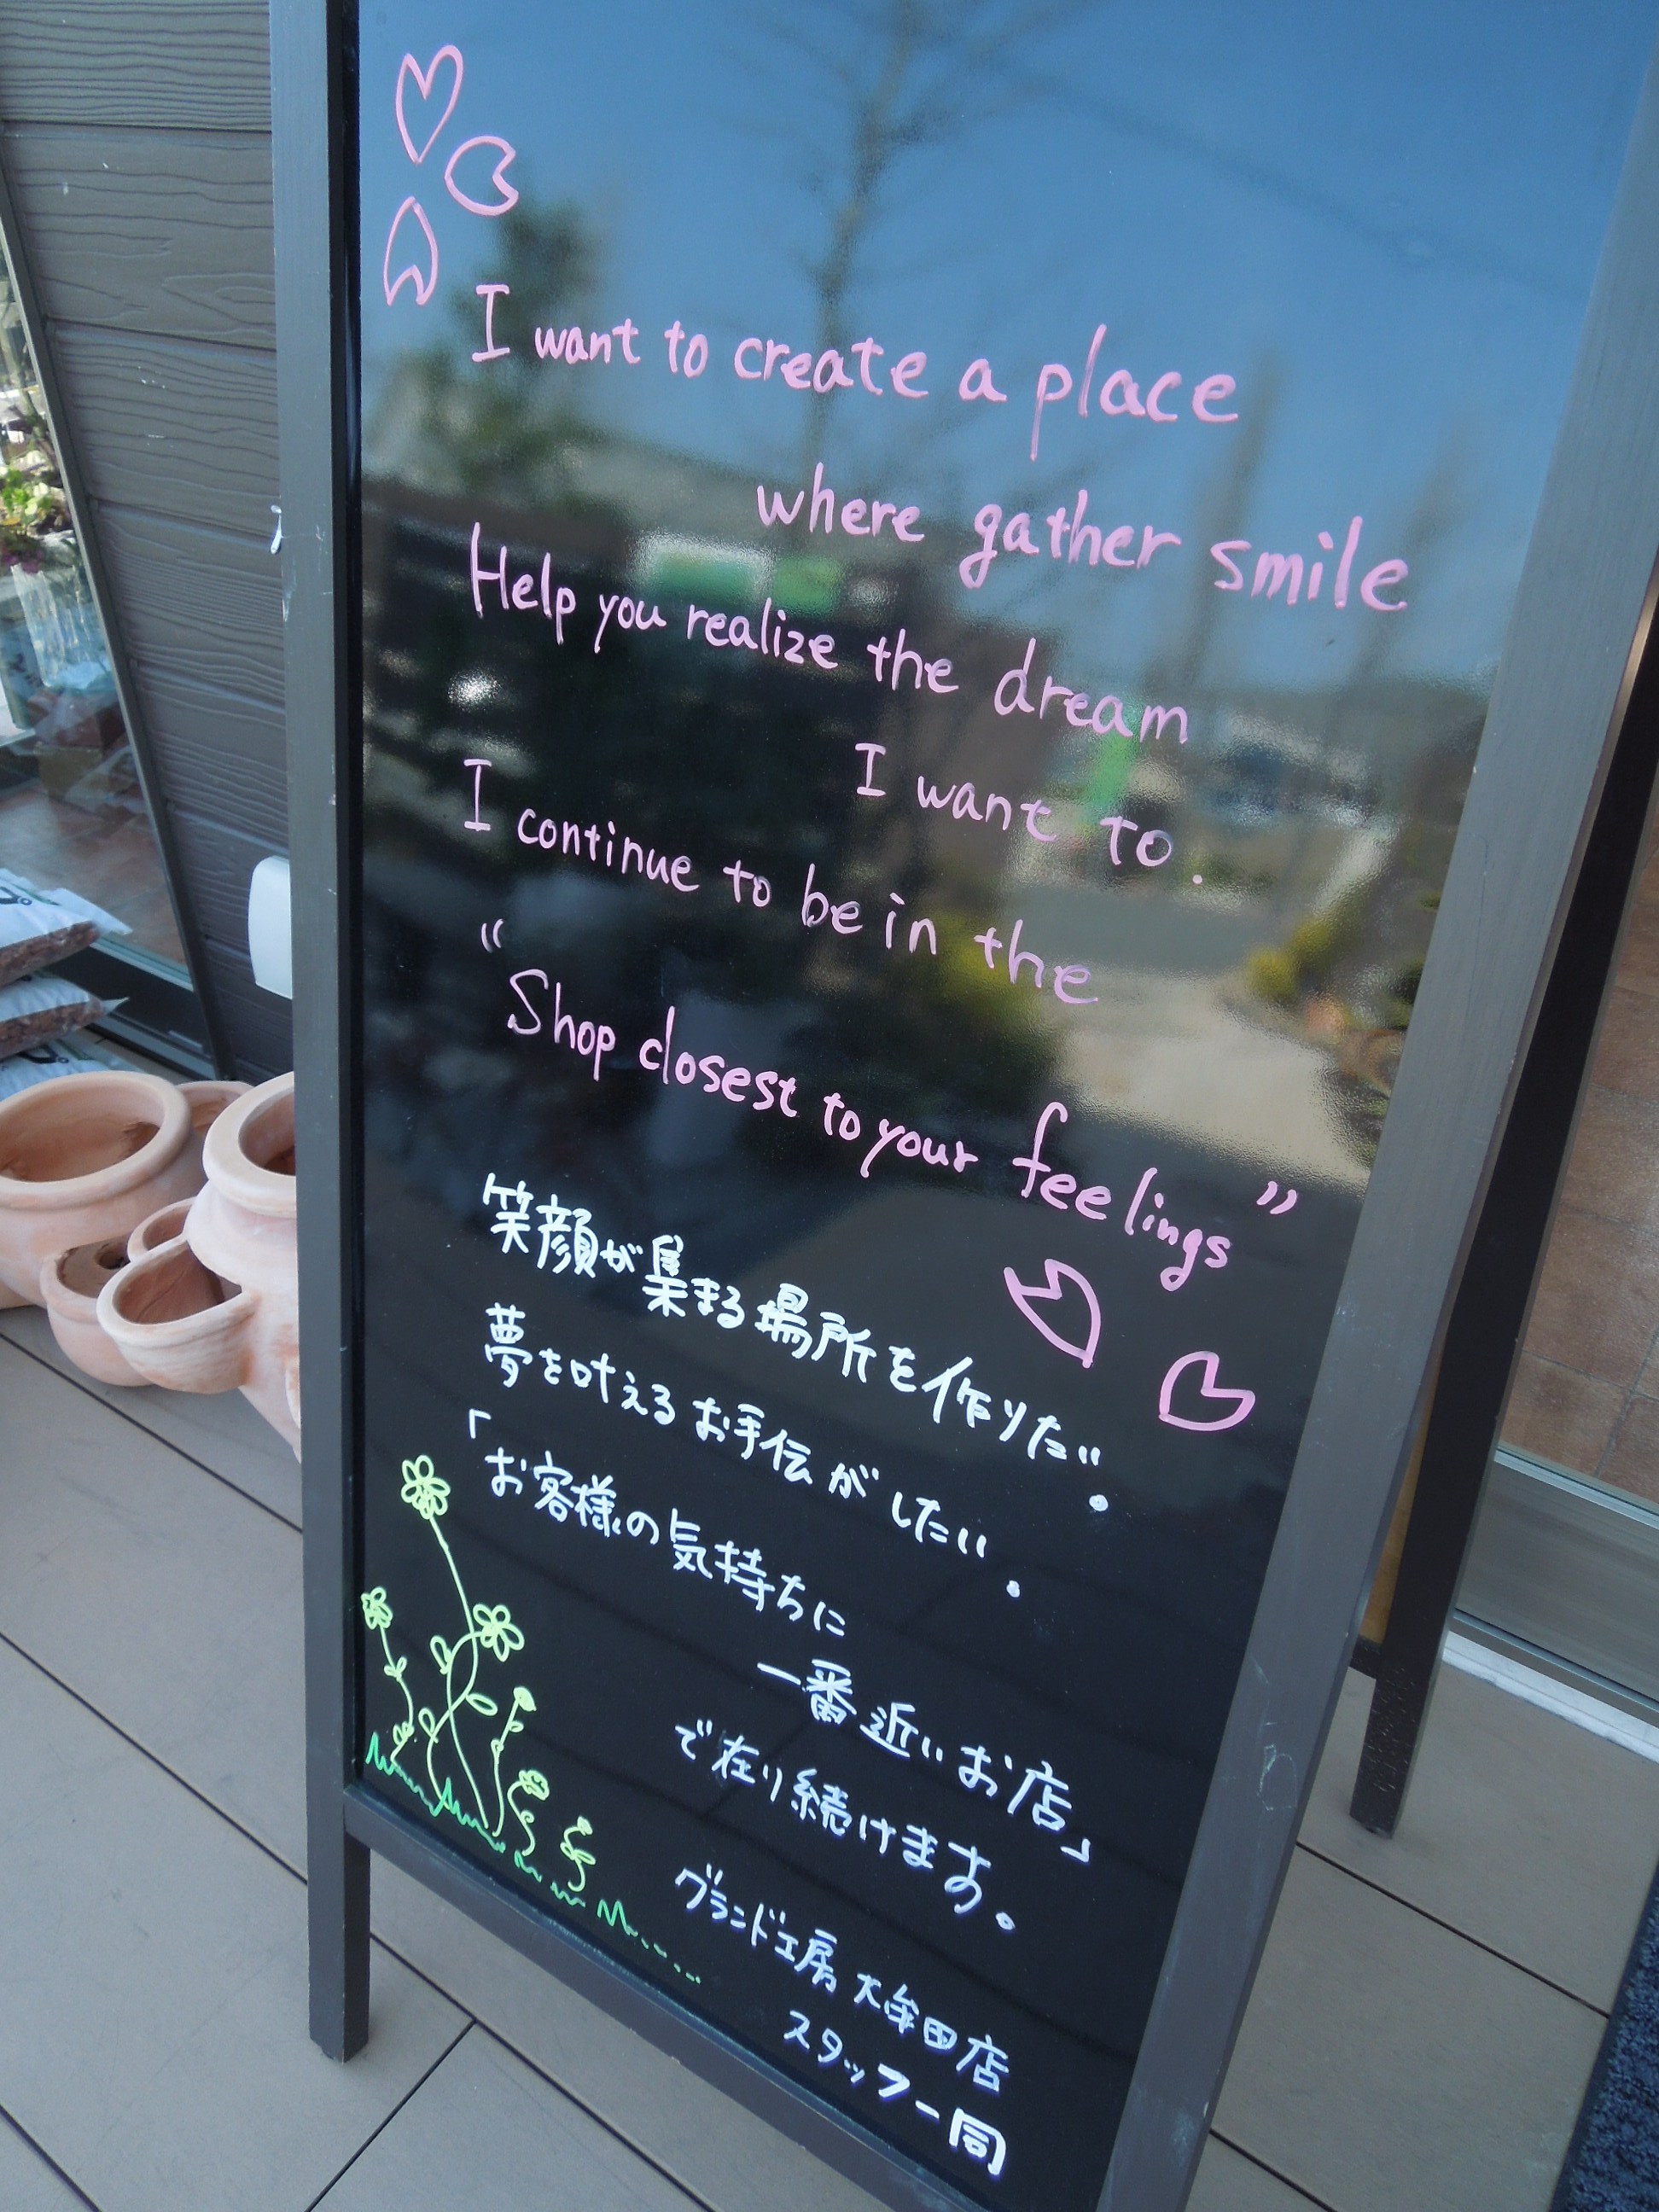 I want to create a place
where gather smile
Help you realize the dream
I want to.
I continue to be in the
"Shop closest to your feelings"
笑顔が集まる場所を作りたい。
夢を叶えるお手伝がしたい。
「お客様の気持ちに
一番近いお店」
で在り続けます。
グランド工房 大牟田店
スタッフ一同